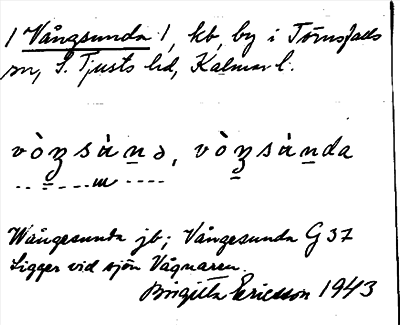 1 Vångsunda 1, kb, by i Törnsfalls
sn, S. Tjusts hd, Kalmar l.
vòŋsànə, vòŋsànda
Wångesunda jb; Vångesunda G 37
Ligger vid sjön Vågnaren.
Birgitta Ericsson 1943